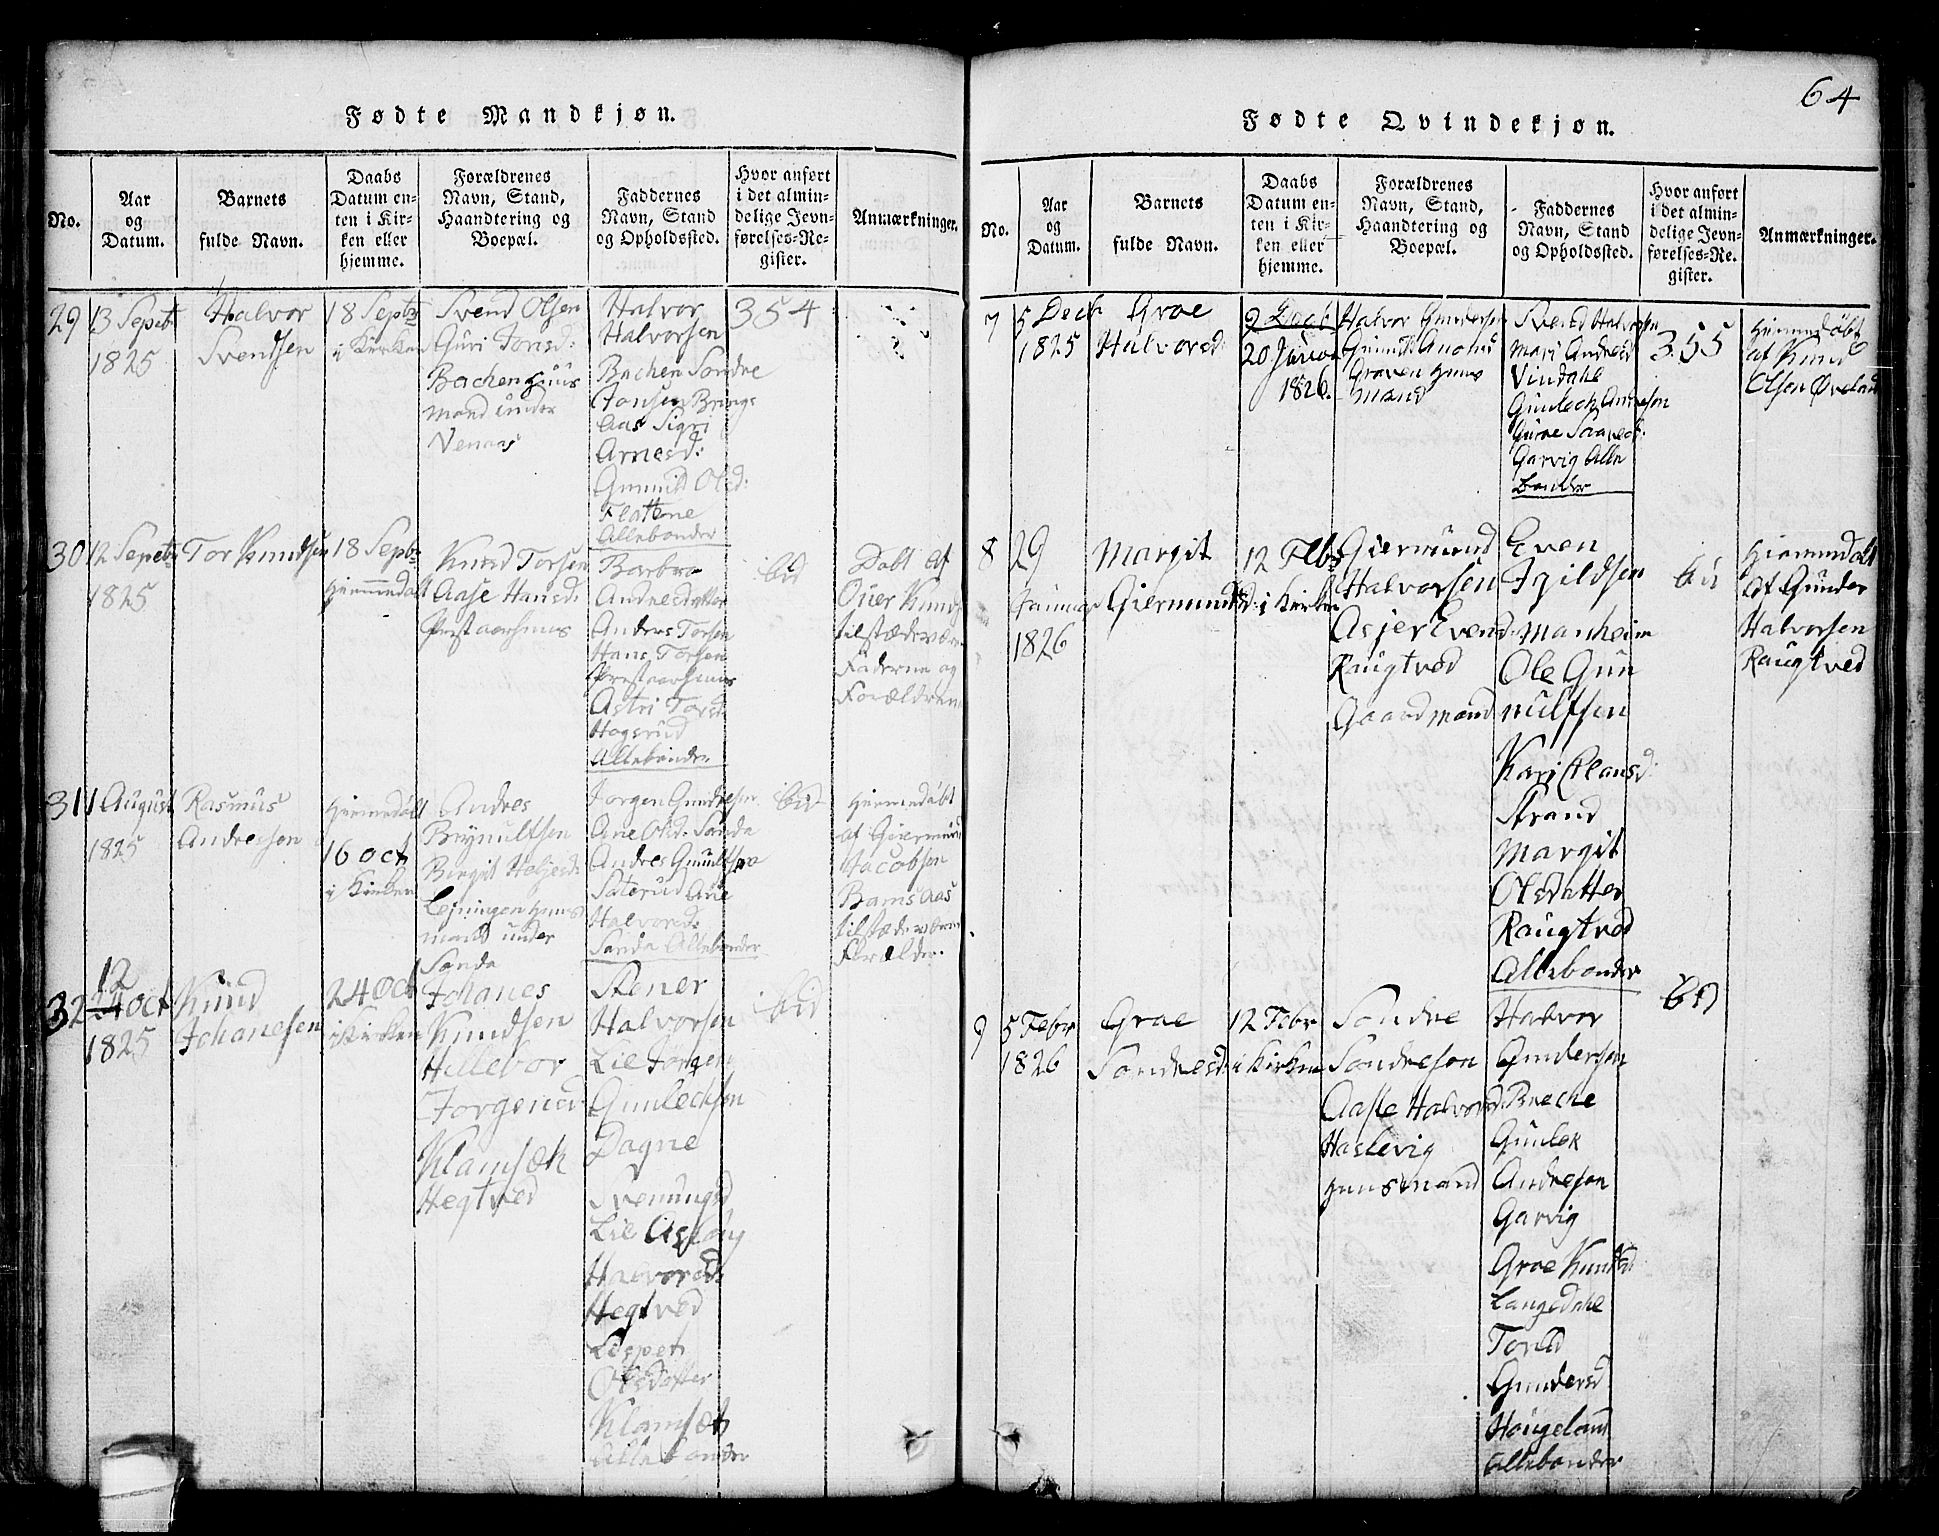 64
Fødte Mandkjøn.
No.
Aar
og
Datum.
Barnets
fulde Navn.
Daabs
Datum en-
ten i Kir-
ken eller
hjemme.
Forældrenes
Navn, Stand,
Haandtering og
Boepæl.
Faddernes
Navn, Stand
og Opholdssted.
Hvor anført
i det almin-
delige Jevn-
førelses-Re-
gister.
Anmærkninger.
29
13 Septbr
1825
Halvor
Svendsen
18 Septbr
i Kirken
Svend Olsen
Guri Jonsd:
Bachen Huus
mand under
Venaas
Halvor
Halvorsen
Bachen Sondre
Jonsen Brings
Aas Sigri
Arnesd:
Gunnild Olsd:
Flattene
Allebønder
354
30
12 Septbr
1825
Tor Knudsen
18 Septbr
Hiemmedøbt
Knud Torsen
Aase Hansd:
Præstaarhuus
Barbra
Andresdatter
Anders Torsen
Hans Torsen
Præstaarhuus
Astri Torsd:
Hogsrud
Allebønder
ibid
Døbt af
Over Knuds
tilstædeværen
Faderne og
Forældrene
31
11 August
1825
Rasmus
Andresen
Hiemmedøbt
16 Oct
i Kirken
Andres
Brynultsen
Birgit Heljesd:
Lejningen Huus
mand under
Sanda
Jorgen Gundresen
Ane Olsd: Sanda
Andres Gunultsen
Saterud Ane
Halvorsd:
Sanda Allebønder
ibid
Hiemmedøbt
af Giermund
Jacobsen
Bamsaas
tilstædeværen
Forældre.
32
12
24 Oct
1825
Knud
Johanesen
24 Oct
i Kirken
Johanes
Knudsen
Hellebor
Jorgensd
Klamsæt
Hegtved
Stener
Halvorsen
Lie Jørgen
Gunlechsen
Dagne
Svenungsd
Lie Aslaug
Halvorsd:
Hegtved
Lispet
Olsdatter
Klamsæt
Allebønder
ibid
Fødte Qvindekjøn.
No.
Aar
og
Datum.
Barnets
fulde Navn.
Daabs
Datum en-
ten i Kir-
ken eller
hjemme.
Forældrenes
Navn, Stand,
Haandtering og
Boepæl.
Faddernes
Navn, Stand
og Opholdssted.
Hvor anført
i det almin-
delige Jevn-
førelses-Re-
gister.
Anmærkninger.
7
5 Decb
1825
Groe
Halvorsd:
9 Decb
20 Januar
1826.
Halvor Gundersen
Graven Huus
mand
Svend Halvorsen
Mari Andresd
Vindahl
Gunlech Andresen
Garvig Alle
Bønder
355
Hiemmedøbt
af Knud
Olsen Øveland
8
29
Januar
1826
Margit
Giermundsd:
12 Febr
i Kirken
Giermund
Halvorsen
Asjer Evensd:
Raugtved
Gaardmand
Even
Izildsen
Manheim
Ole Gun
nulfsen
Kari Clausd:
Strand
Margit
Olsdatter
Raugtved
Allebønder
ibid
Hiemmedøbt
af Gunder
Halvorsen
Raugtved
9
5 Febr
1826
Groe
Sondresd:
12 Febr
i Kirken
Sondre
Sondresen
Aasle Halvorsd:
Haslevig
Huusmand
Halvor
Gundersen
Breche
Gunlek
Andresen
Garvig
Groe Knudsd:
Langedahl
Torild
Gundersd
Haugeland
Allebønder
ibid